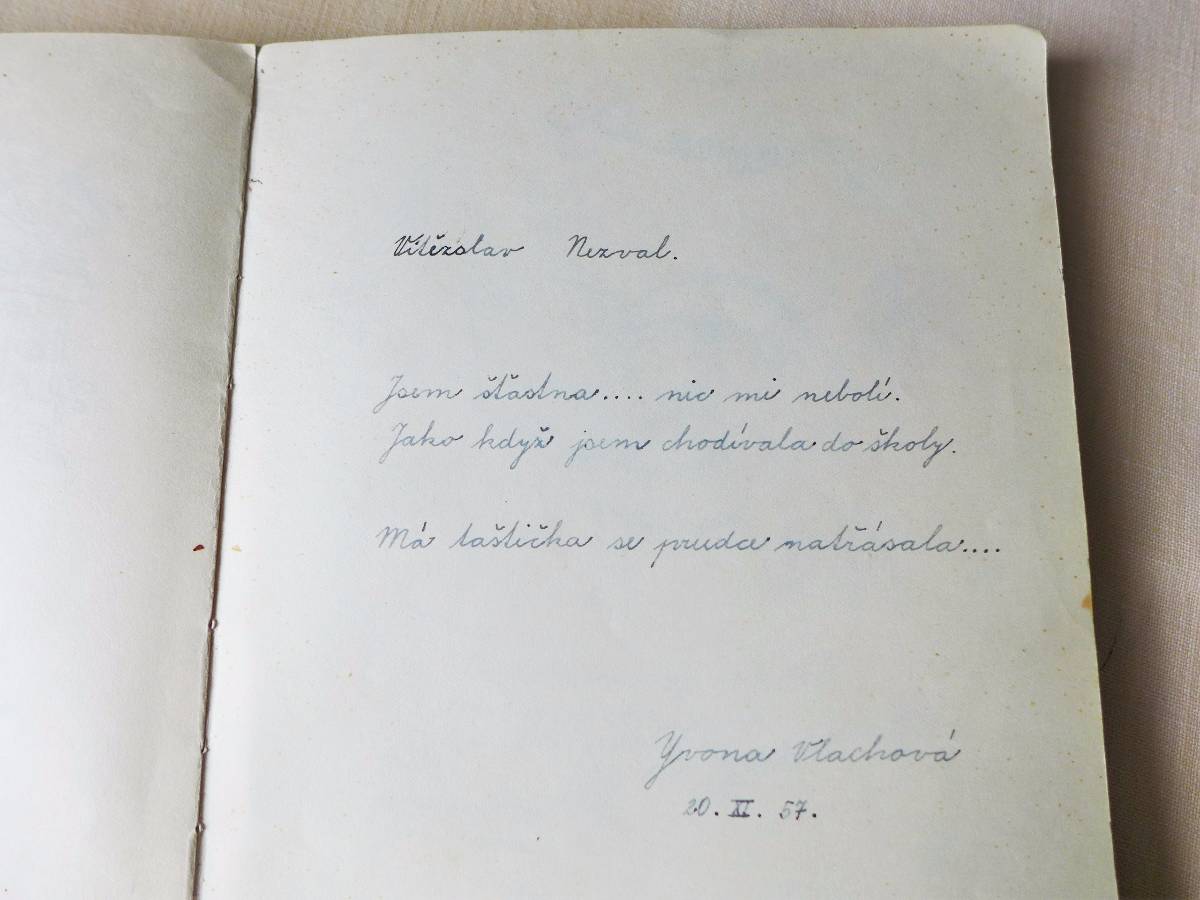 Vítězslav Nezval.
Jsem šťastna.... nic mi nebolí.
Jako když jsem chodívala do školy.
Má taštička se prudce natřásala....
Yvona Vlachová
20. XI. 57.